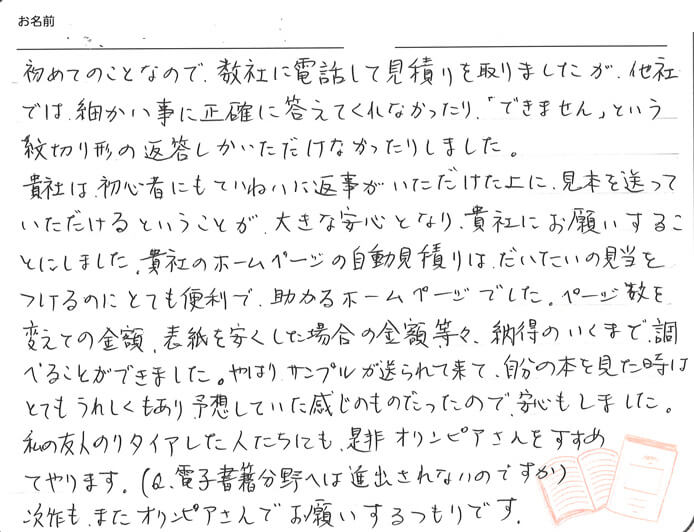 お名前
初めてのことなので、数社に電話して見積りを取りましたが、他社
では、細かい事に正確に答えてくれなかったり、「できません」という
紋切り形の返答しかいただけなかったりしました。
貴社は、初心者にもていねいに返事がいただけた上に、見本を送って
いただけるということが、大きな安心となり、貴社にお願いするこ
とにしました。貴社のホームページの自動見積りは、だいたいの見当を
つけるのにとても便利で、助かるホームページでした。ページ数を
変えての金額、表紙を安くした場合の金額等々、納得のいくまで、調
べることができました。やはり、サンプルが送られて来て、自分の本を見た時は
とてもうれしくもあり予想していた感じのものだったので、安心もしました。
私の友人のリタイアした人たちにも、是非オリンピアさんをすすめ
てやります。(Q、電子書籍分野へは進出されないのですか)
次作も、またオリンピアさんでお願いするつもりです。